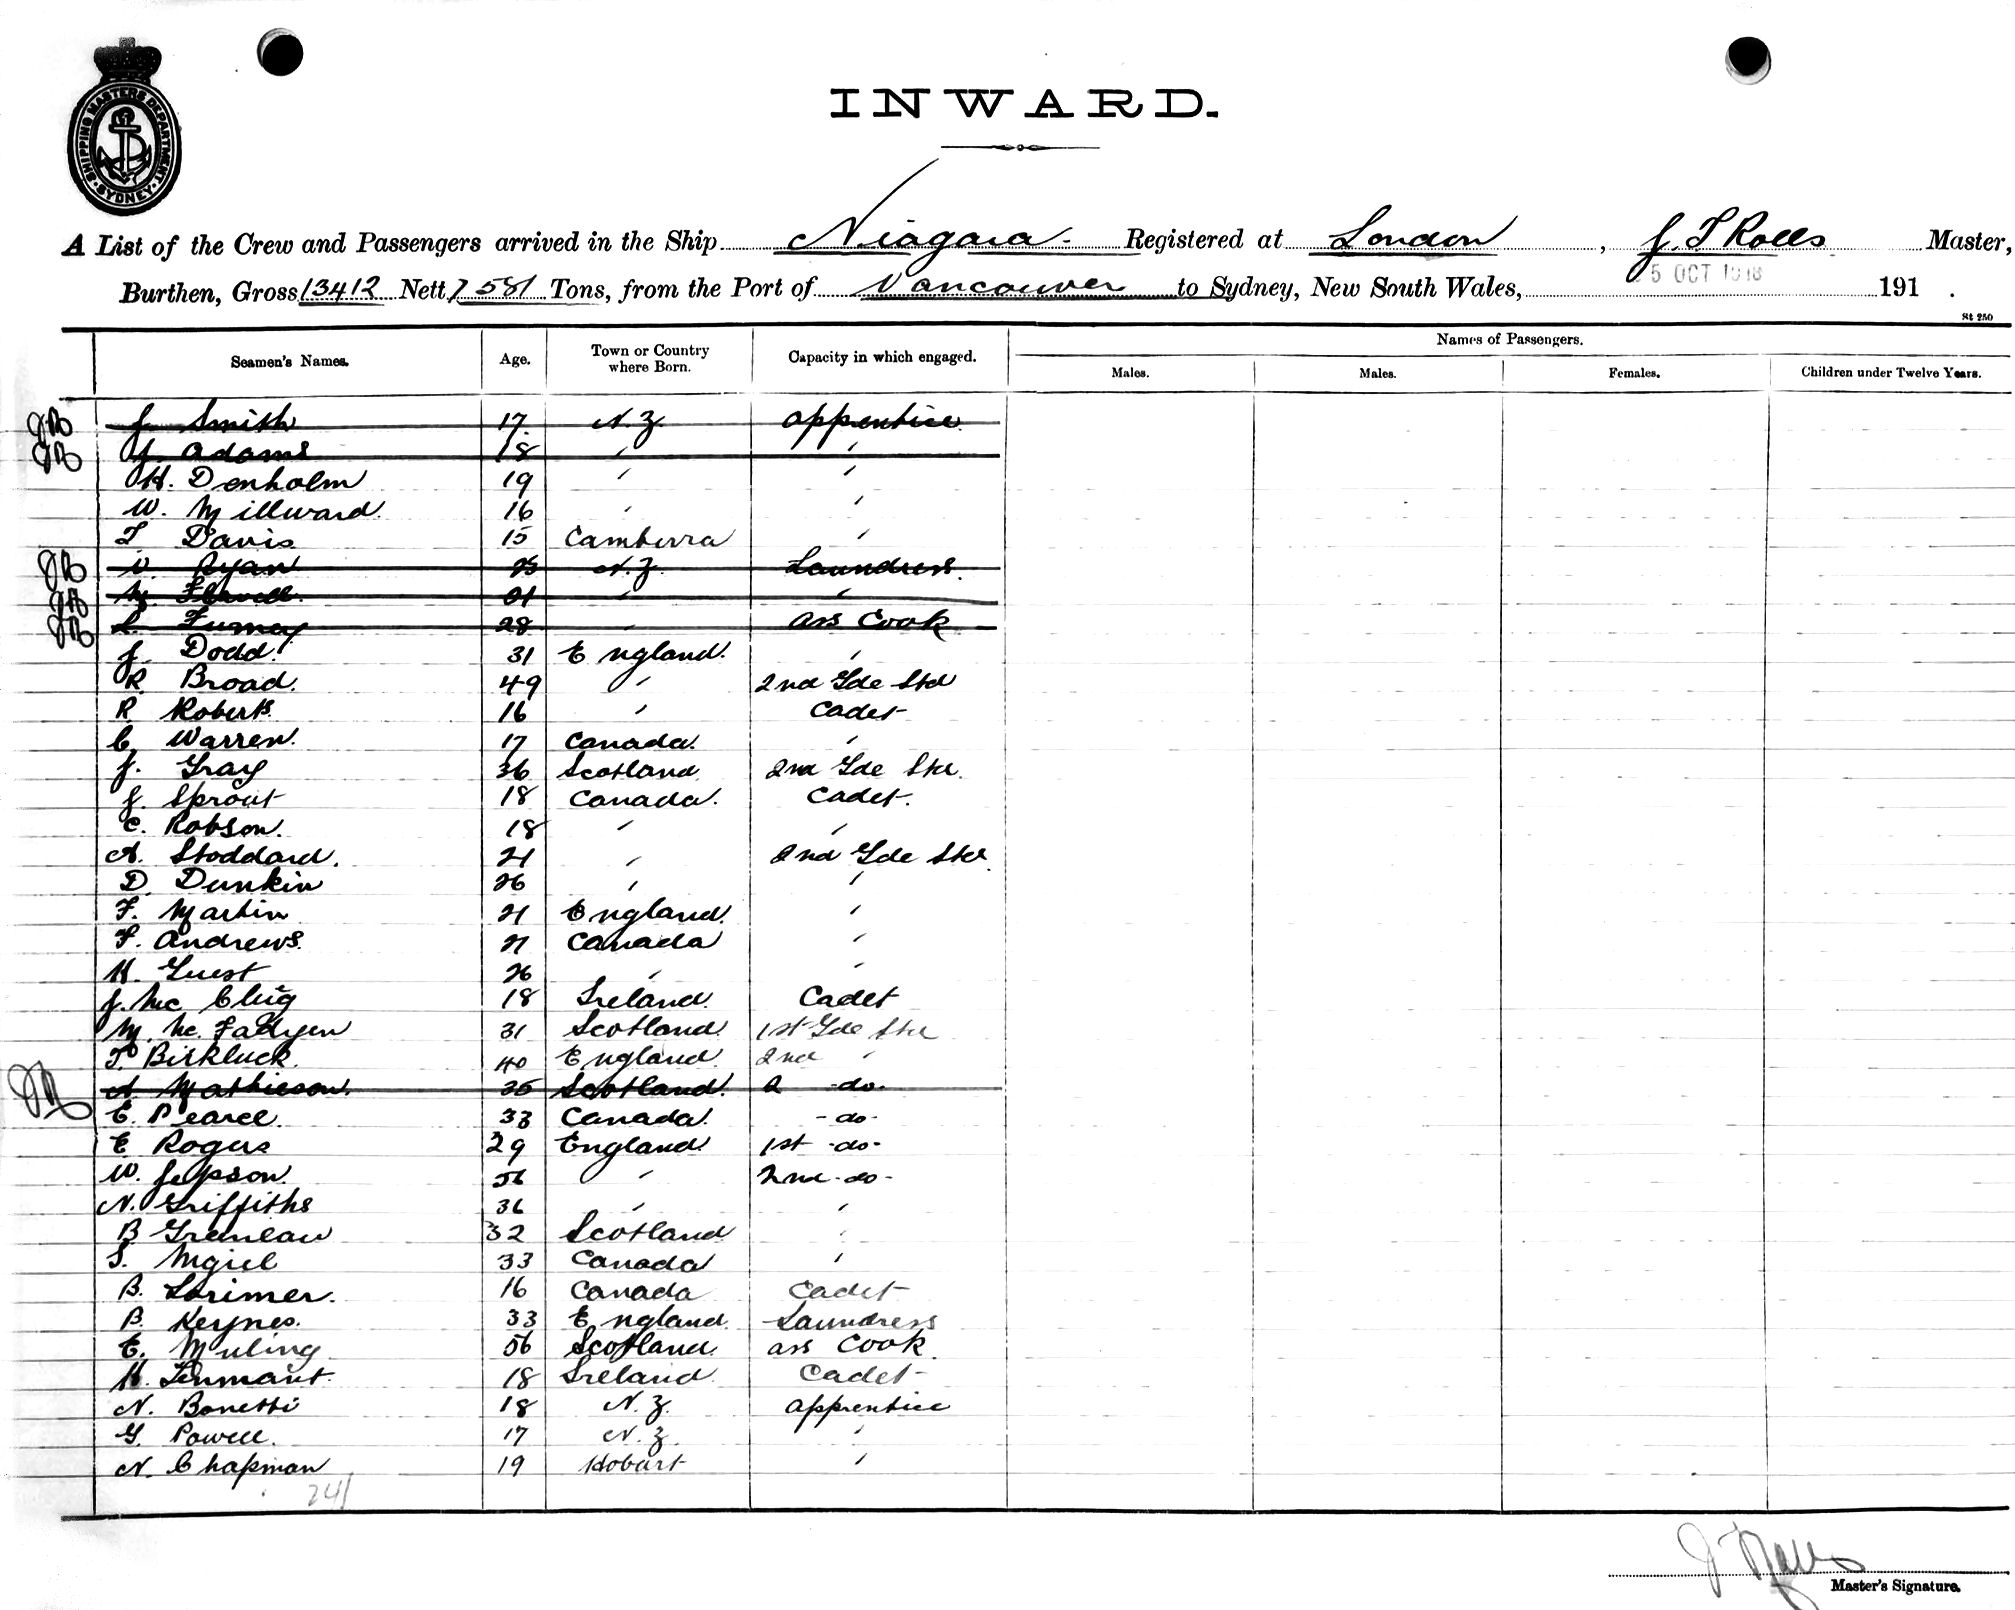 SHIPPING MASTERS DEPARTMENT
SYDNEY
INWARD.
A List of the Crew and Passengers arrived in the Ship Niagara Registered at London, J. T Rolls Master,
Burthen, Gross 13412 Nett 7581 Tons, from the Port of Vancouver to Sydney, New South Wales, 5 OCT 1918 191 .
St 250
Seamen's Names. Age. Town or Country where Born. Capacity in which engaged. Names of Passengers.
Males. Males. Females. Children under Twelve Years.
J. Smith 17 N.Z. apprentice
J. Adams 18 " "
H. Denholm 19 " "
W. Millward. 16 " "
T Davis 15 Camberra "
Ryan 25 N.Z. Laundress
M. 21 " "
L. 28 " ass Cook
J. Dodd. 31 England. "
R. Broad. 49 " 2nd Gde Std
R Roberts. 16 " Cadet
C. Warren. 17 Canada. "
J. Gray 36 Scotland 2nd Gde Std.
J. Sprout 18 Canada. Cadet.
C. Robson. 18 " "
A. Stoddard. 21 " 2nd Gde Std
D. Dunkin 26 " "
F. Martin 21 England. "
F. Andrews. 21 Canada "
H. Guest 26 " "
J. Mc Clug 18 Ireland. Cadet
M. Mc. Fadyen 31 Scotland 1st Gde Std
T. Birkluck. 40 England 2nd "
A. Mathieson. 35 Scotland. 2 -do-
E. Pearce. 33 Canada. -do-
E Rogers 29 England 1st -do-
W. Jepson. 56 " 2nd -do-
N. Griffiths 36 " "
B Grenlaw 32 Scotland "
S. 33 Canada "
B. Lorimer. 16 Canada Cadet
B. Keynes. 33 England. Laundress
E. Muling 56 Scotland. ass Cook.
H. Tennant. 18 Ireland Cadet
N. Bonetti 18 N.Z. apprentice
G. Powell. 17 N.Z. "
N. Chapman 19 Hobart "
241
J Rolls
Master's Signature.